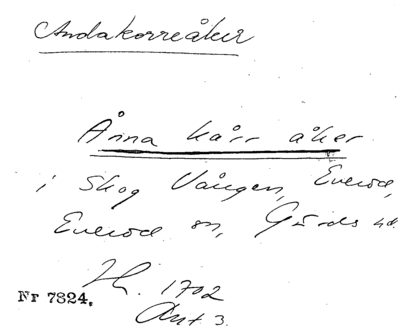 Andakorreåker
Ånna kårr åker
i Skog Vången, Everöd,
Everöd sn, Gärds hd.
Lh. 1702
Ant 3.
Nr 7824.